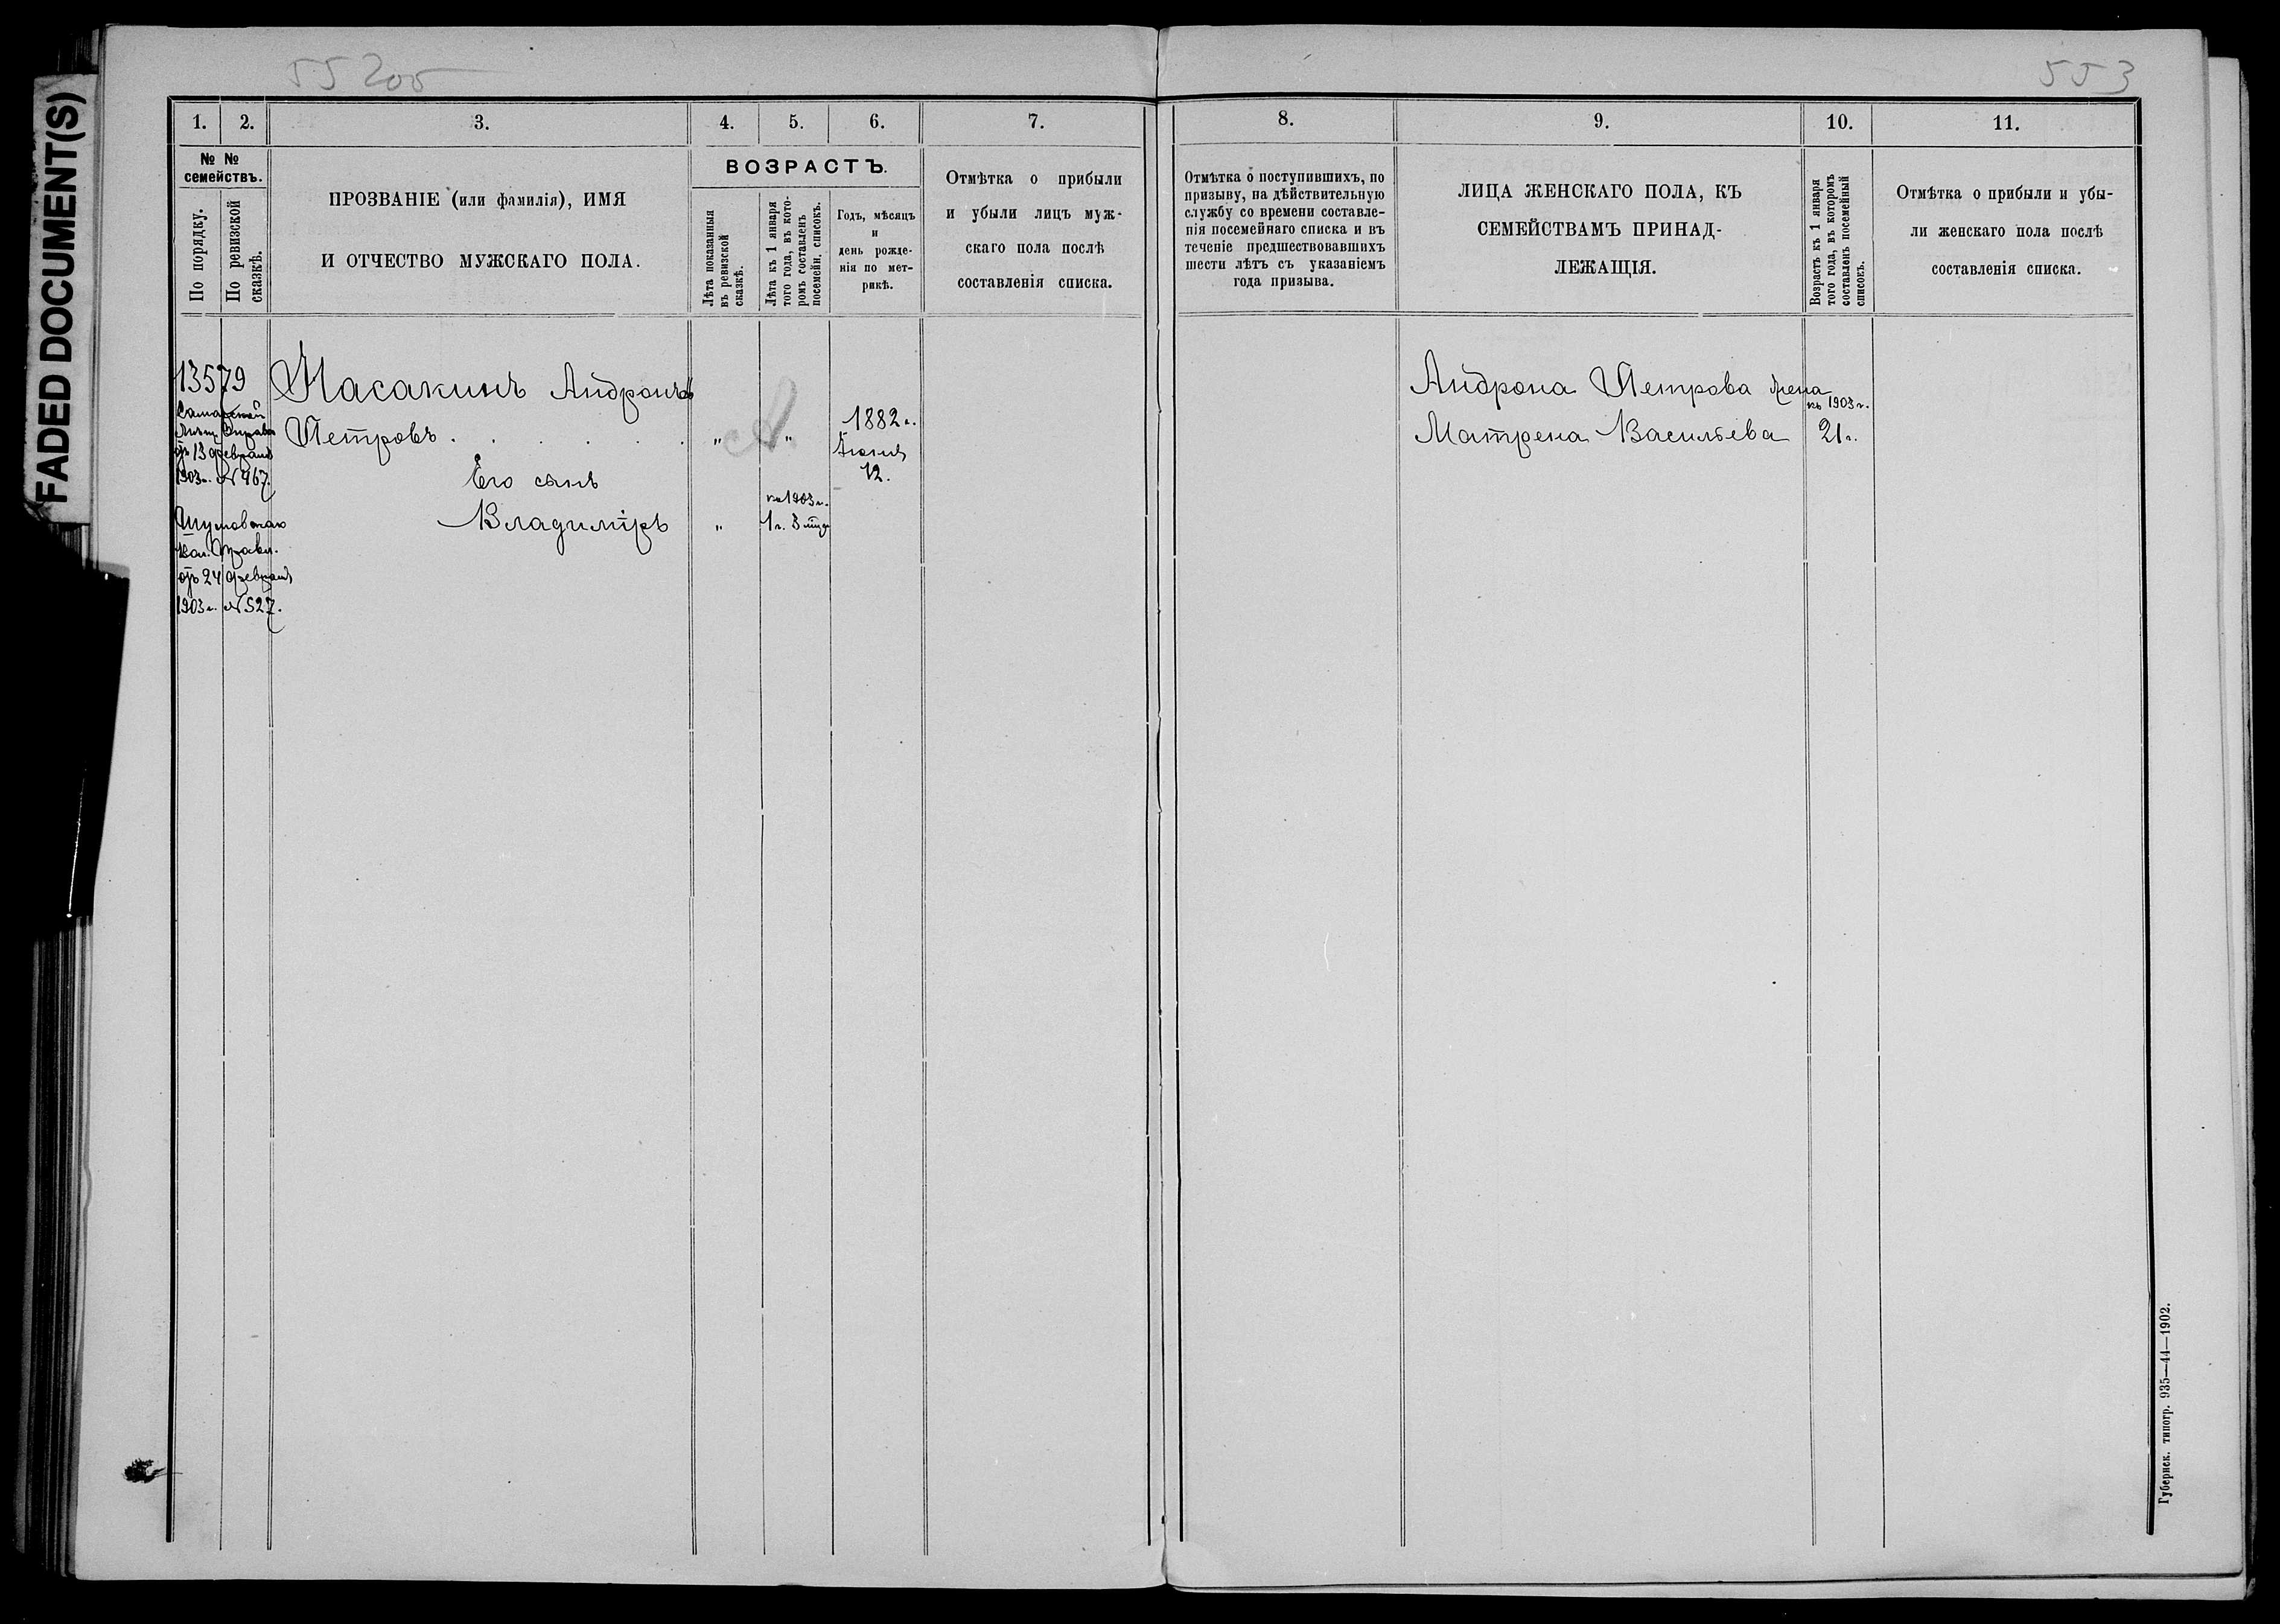 FADED DOCUMENT(S)
553
1. 2. 3. 4. 5. 6. 7.
№ №
семействъ.
По порядку.
По ревизской
сказкѣ.
ПРОЗВАНІЕ (или фамилія), ИМЯ
И ОТЧЕСТВО МУЖСКАГО ПОЛА.
ВОЗРАСТЪ.
Лѣта показанныя
въ ревизской
сказкѣ.
Лѣта къ 1 января
того года, въ кото-
ромъ составленъ
посемейн. списокъ.
Годъ, мѣсяцъ
и
день рожде-
нія по мет-
рикѣ.
Отмѣтка о прибыли
и убыли лицъ муж-
скаго пола послѣ
составленія списка.
13579
Самарской
Мѣщ. Управы
отъ 13 февраля
1903 г. № 467.
Вол. Правл.
отъ 24 февраля
1903 г. № 527.
Насакинъ Андронъ
Петровъ . . . . .
Его сынъ
Владиміръ
" "
1882 г.
12.
"
на 1903 г.
1 г. 3 мѣс
8. 9. 10. 11.
Отмѣтка о поступившихъ, по
призыву, на дѣйствительную
службу со времени составле-
нія посемейнаго списка и въ
теченіе предшествовавшихъ
шести лѣтъ съ указаніемъ
года призыва.
ЛИЦА ЖЕНСКАГО ПОЛА, КЪ
СЕМЕЙСТВАМЪ ПРИНАД-
ЛЕЖАЩІЯ.
Возрастъ къ 1 января
того года, въ которомъ
составленъ посемейный
списокъ.
Отмѣтка о прибыли и убы-
ли женскаго пола послѣ
составленія списка.
Андрона Петрова жена
Матрена Васильева
къ 1903 г.
21 г.
Губернск. типогр. 935—44—1902.